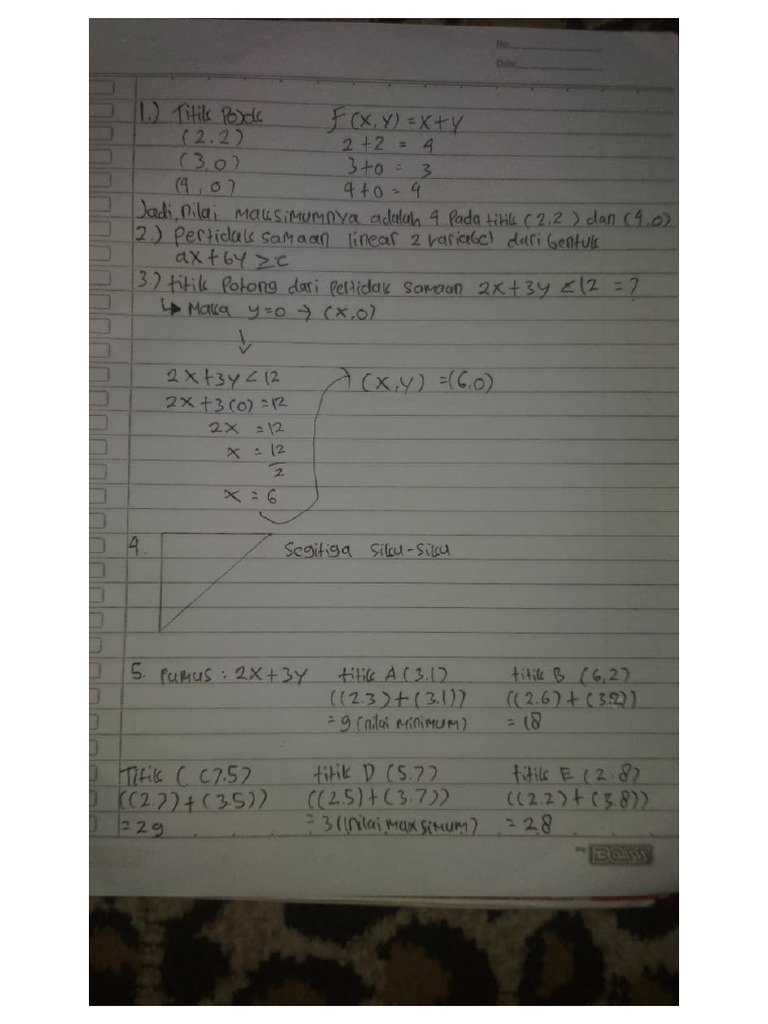 No.
Date:
1.) Titik Pojok F(x,y) = x+y
(2.2) 2+2 = 4
(3,0) 3+0 = 3
(4,0) 4+0 = 4
Jadi, nilai maksimumnya adalah 4 Pada titik (2,2) dan (4,0)
2.) Pertidak samaan linear 2 variabel dari bentuk
ax + by ≥ c
3.) titik Potong dari Pertidak samaan 2x+3y < 12 = ?
↳ Maka y=0 → (x,0)
2x+3y < 12 → (x,y) = (6,0)
2x+3(0) = 12
2x = 12
x = 12
2
x = 6
4. Segitiga Siku-Siku
5. Rumus : 2x+3y titik A (3.1) titik B (6,2)
((2.3)+(3.1)) ((2.6)+(3.2))
= 9 (nilai minimum) = 18
Titik C (7.5) titik D (5.7) titik E (2.8)
((2.7)+(3.5)) ((2.5)+(3.7)) ((2.2)+(3.8))
= 29 = 31 (nilai maxsimum) = 28